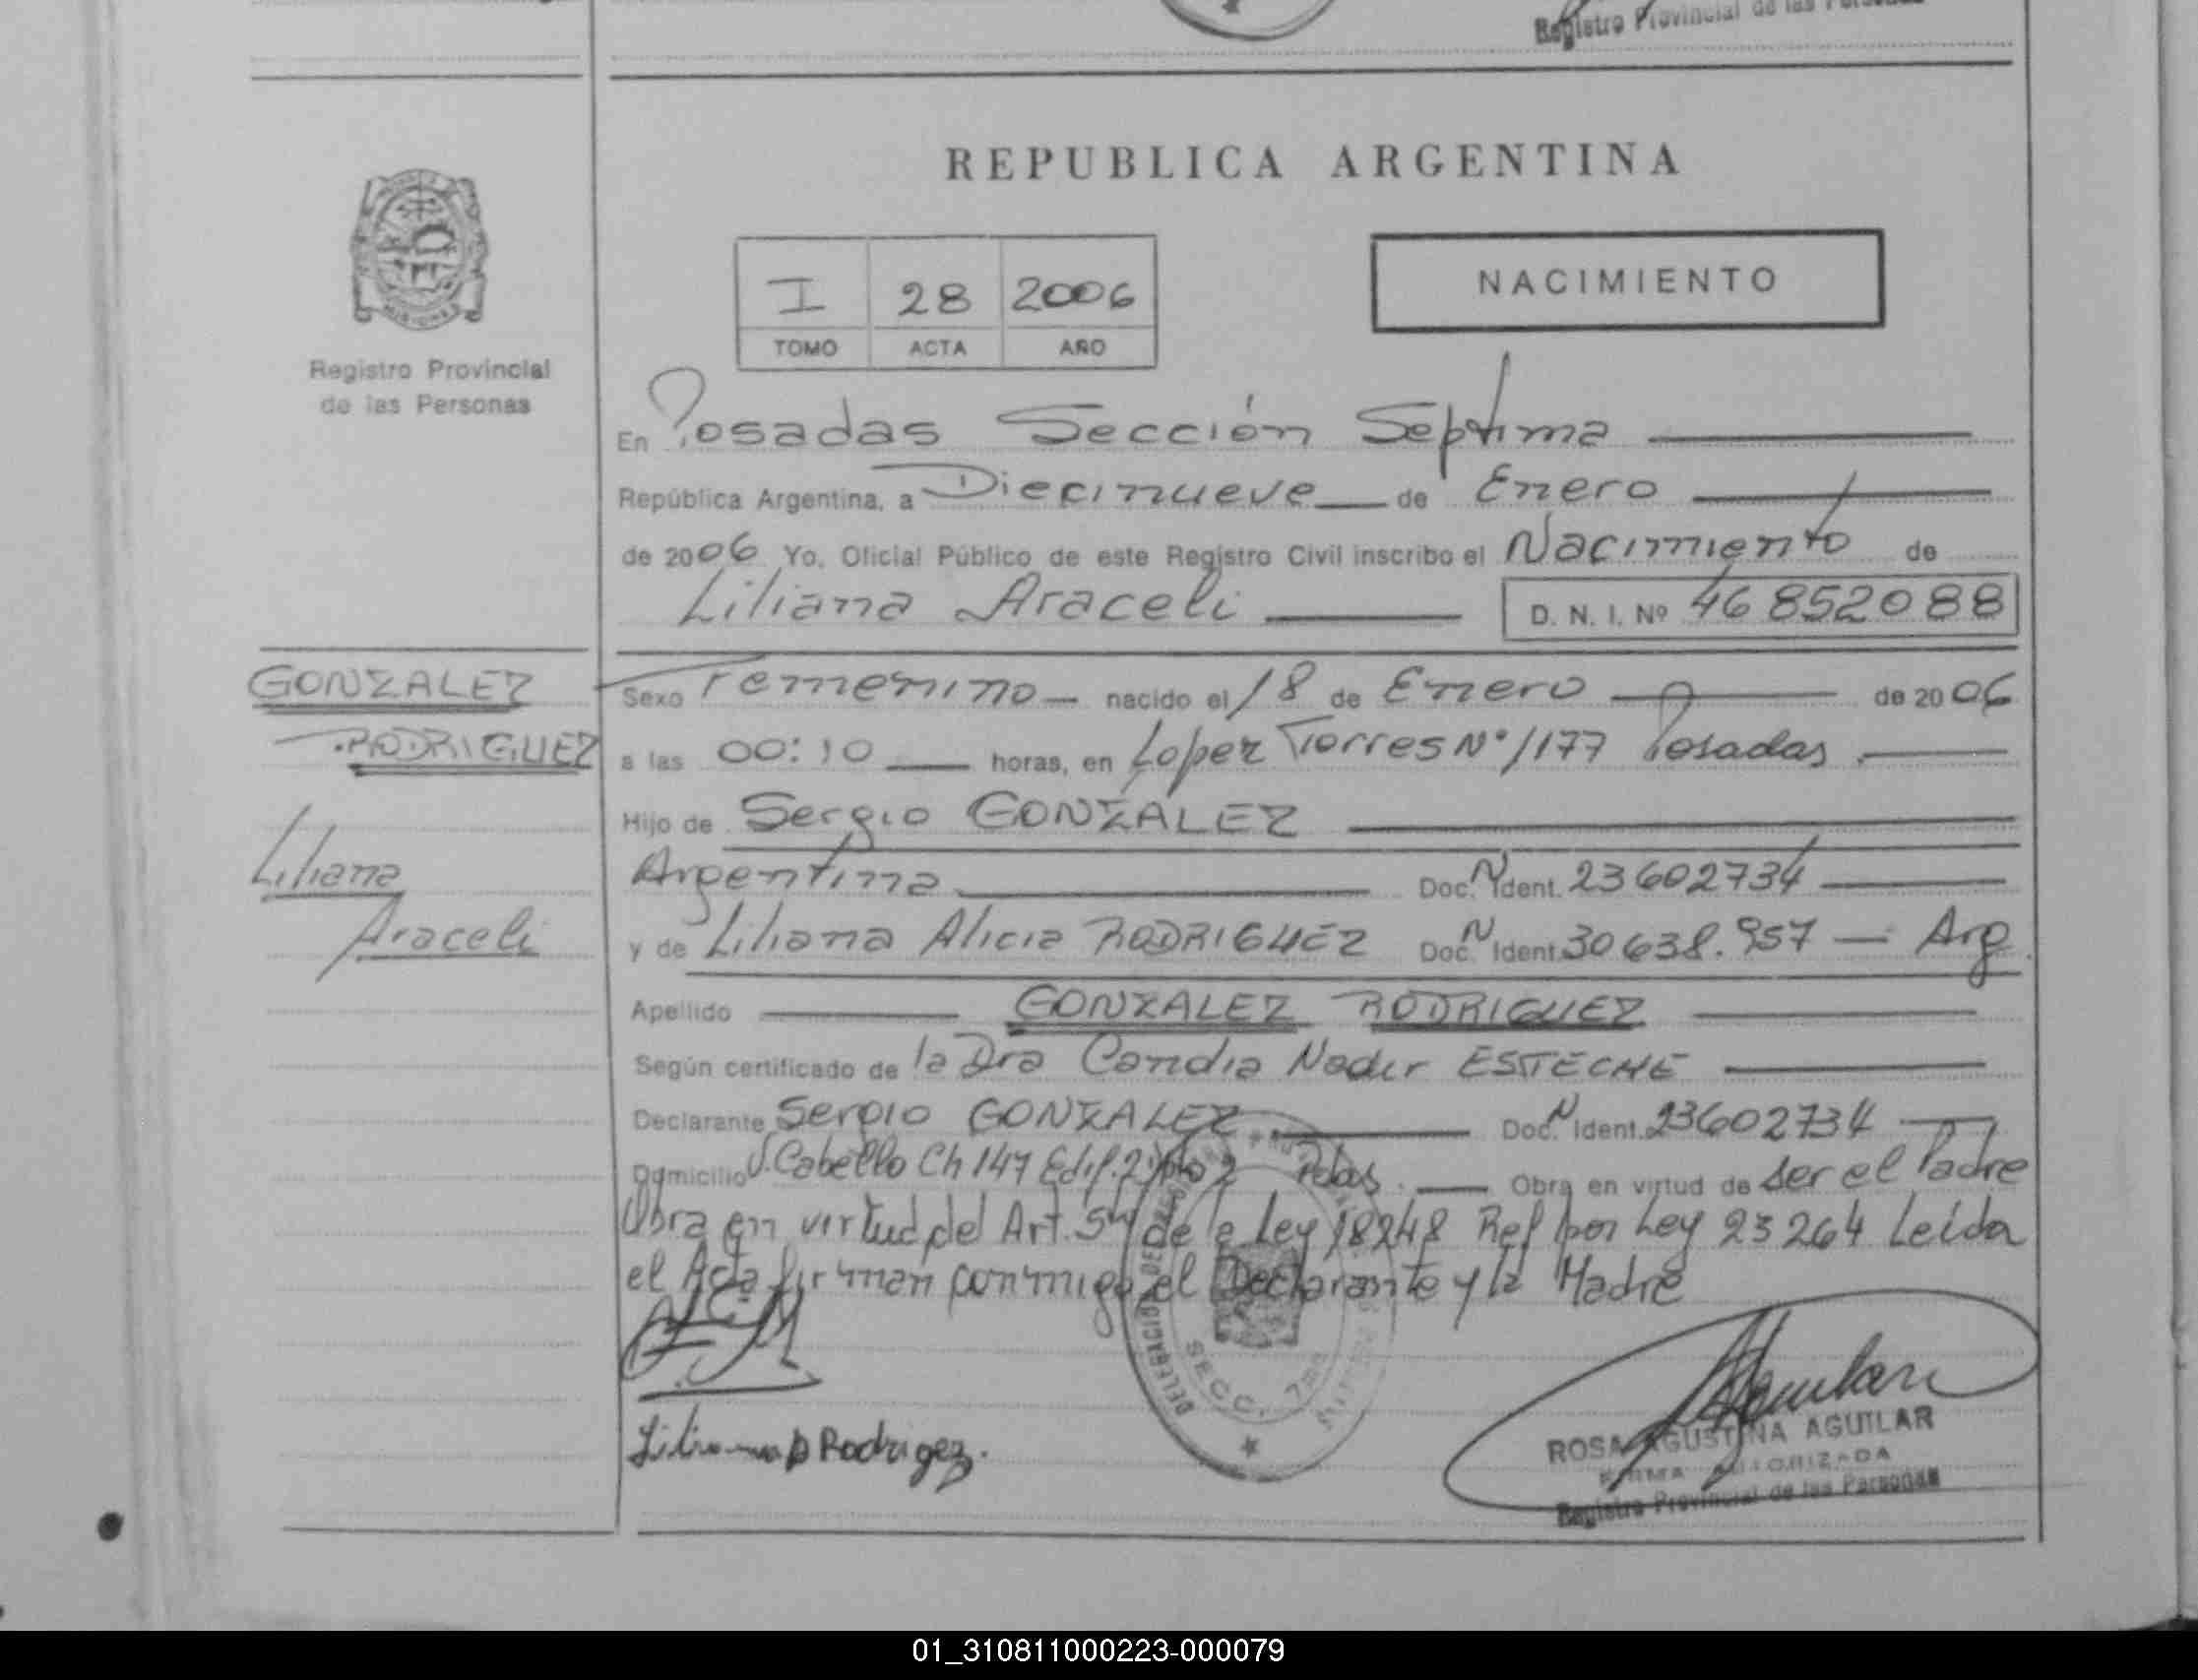 Registro Provincial de las Personas
REPUBLICA ARGENTINA
I 28 2006
TOMO ACTA AÑO
NACIMIENTO
Registro Provincial
de las Personas
En Posadas Sección Septima
República Argentina, a Diecinueve de Enero
de 2006 Yo, Oficial Público de este Registro Civil inscribo el Nacimiento de
Liliana Araceli D. N. I. Nº 46852088
GONZALEZ
RODRIGUEZ
Liliana
Araceli
Sexo Femenino nacido el 18 de Enero de 2006
a las 00:10 horas, en Lopez Torres Nº 1177 Posadas
Hijo de Sergio GONZALEZ
Argentina Doc. N Ident. 23602734
y de Liliana Alicia RODRIGUEZ Doc. N Ident. 30638.957 — Arg.
Apellido GONZALEZ RODRIGUEZ
Según certificado de la Dra Candia Nadir ESTECHE
Declarante Sergio GONZALEZ Doc. N Ident. 23602734
Domicilio V. Cabello Ch 147 Edif. 2 Pdas. Obra en virtud de ser el Padre
Obra en virtud del Art. 5º de la Ley 18248 Ref por Ley 23264 Leida
el Acta firman conmigo el Declarante y la Madre
DELEGACION DE
SECC. 7ma
Liliana A Rodrigez.
ROSA AGUSTINA AGUILAR
FIRMA AUTORIZADA
Registro Provincial de las Personas
01_310811000223-000079